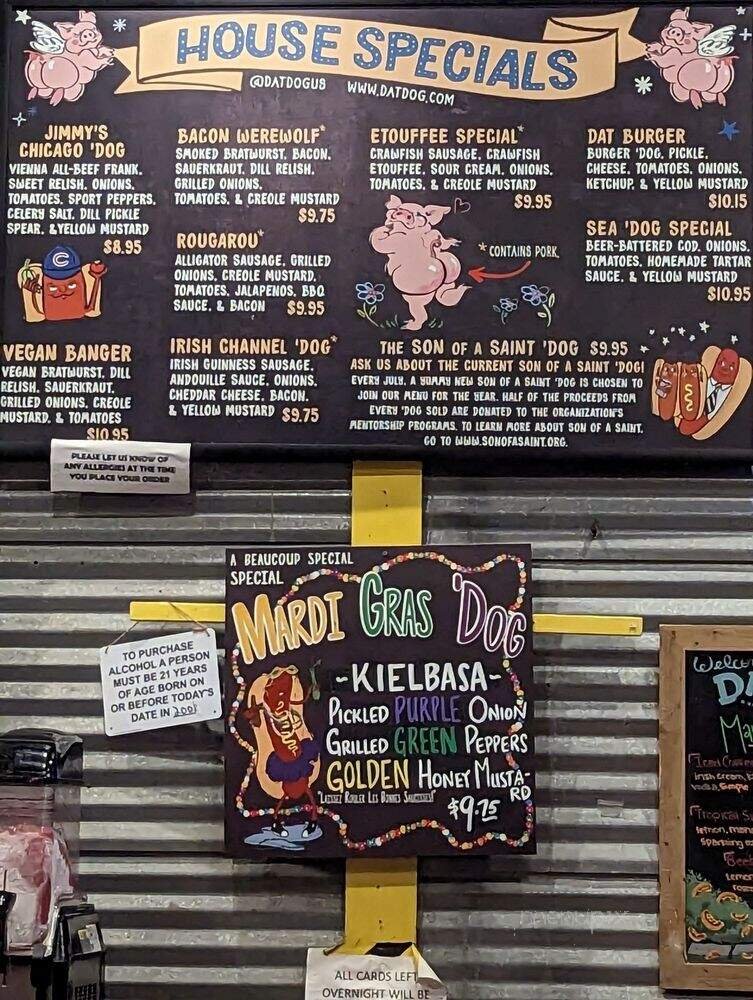 HOUSE SPECIALS
@DATDOGUS WWW.DATDOG.COM
JIMMY'S
CHICAGO 'DOG
VIENNA ALL-BEEF FRANK,
SWEET RELISH, ONIONS,
TOMATOES, SPORT PEPPERS,
CELERY SALT, DILL PICKLE
SPEAR, &YELLOW MUSTARD
$8.95
BACON WEREWOLF*
SMOKED BRATWURST, BACON,
SAUERKRAUT, DILL RELISH,
GRILLED ONIONS,
TOMATOES, & CREOLE MUSTARD
$9.75
ETOUFFEE SPECIAL*
CRAWFISH SAUSAGE, CRAWFISH
ETOUFFEE, SOUR CREAM, ONIONS,
TOMATOES, & CREOLE MUSTARD
$9.95
DAT BURGER
BURGER 'DOG, PICKLE,
CHEESE, TOMATOES, ONIONS,
KETCHUP, & YELLOW MUSTARD
$10.15
ROUGAROU*
ALLIGATOR SAUSAGE, GRILLED
ONIONS, CREOLE MUSTARD,
TOMATOES, JALAPENOS, BBQ
SAUCE, & BACON $9.95
* CONTAINS PORK
SEA 'DOG SPECIAL
BEER-BATTERED COD, ONIONS,
TOMATOES, HOMEMADE TARTAR
SAUCE, & YELLOW MUSTARD
$10.95
C
VEGAN BANGER
VEGAN BRATWURST, DILL
RELISH, SAUERKRAUT,
GRILLED ONIONS, CREOLE
MUSTARD, & TOMATOES
$10.95
IRISH CHANNEL 'DOG*
IRISH GUINNESS SAUSAGE,
ANDOUILLE SAUCE, ONIONS,
CHEDDAR CHEESE, BACON,
& YELLOW MUSTARD $9.75
THE SON OF A SAINT 'DOG $9.95
ASK US ABOUT THE CURRENT SON OF A SAINT 'DOG!
EVERY JULY, A YUMMY NEW SON OF A SAINT 'DOG IS CHOSEN TO
JOIN OUR MENU FOR THE YEAR. HALF OF THE PROCEEDS FROM
EVERY 'DOG SOLD ARE DONATED TO THE ORGANIZATION'S
MENTORSHIP PROGRAMS. TO LEARN MORE ABOUT SON OF A SAINT,
GO TO WWW.SONOFASAINT.ORG.
PLEASE LET US KNOW OF
ANY ALLERGIES AT THE TIME
YOU PLACE YOUR ORDER
A BEAUCOUP SPECIAL
SPECIAL
MARDI GRAS 'DOG
-KIELBASA-
PICKLED PURPLE ONION
GRILLED GREEN PEPPERS
GOLDEN HONEY MUSTA-
RD
"LAISSEZ ROULER LES BONNES SAUCISSES"
$9.75
TO PURCHASE
ALCOHOL A PERSON
MUST BE 21 YEARS
OF AGE BORN ON
OR BEFORE TODAY'S
DATE IN 2001
Welco
Iced
Irish Cream
Tropical
sparkling
ALL CARDS LEFT
OVERNIGHT WILL BE